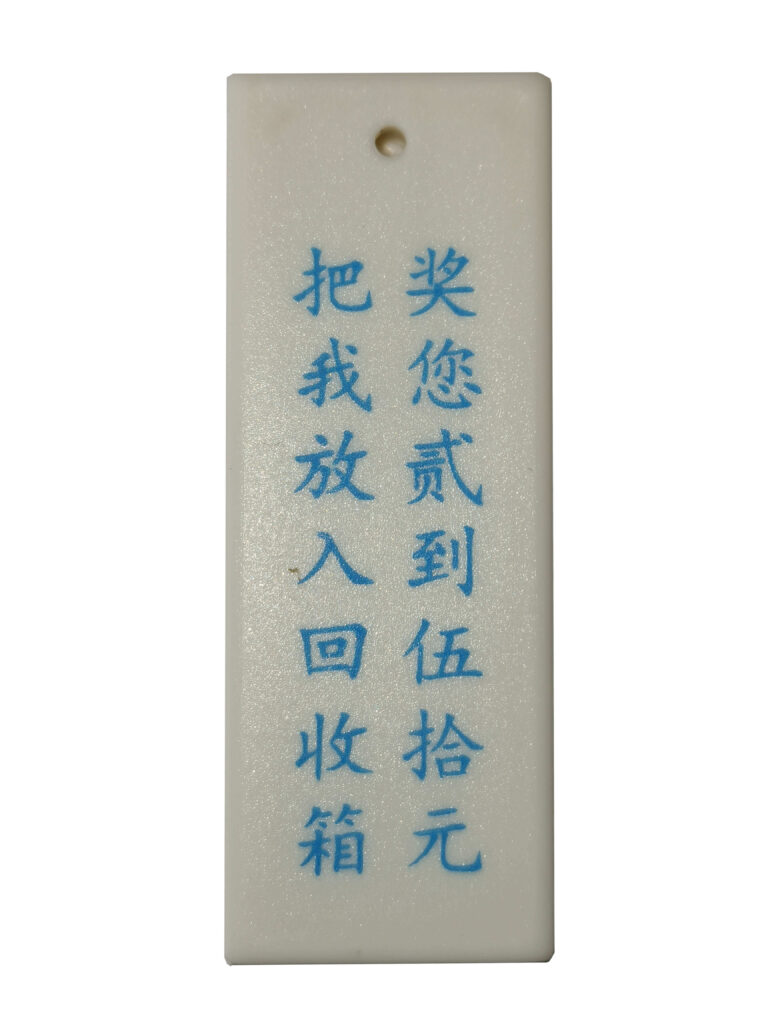 把我放入回收箱
奖您贰到伍拾元